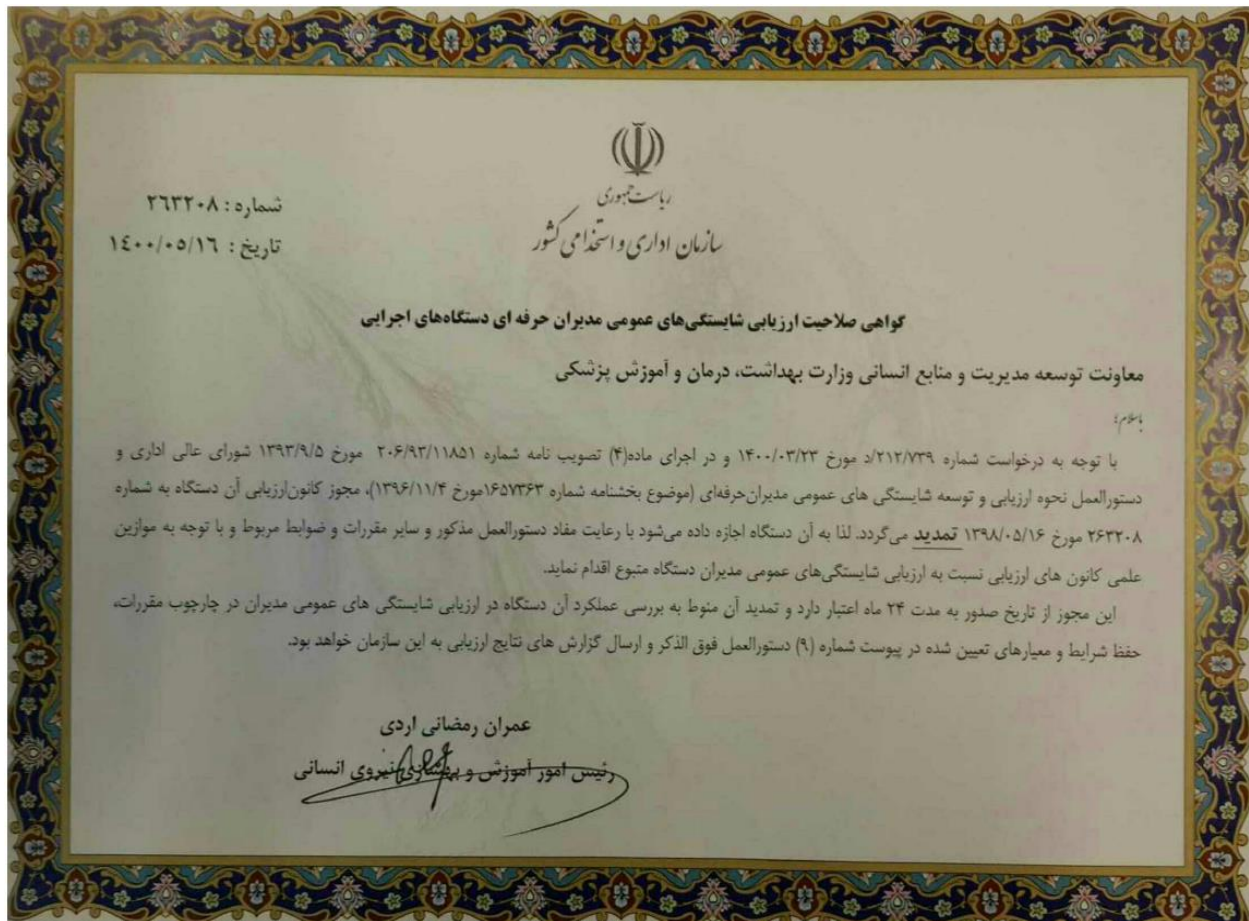 ریاست جمهوری
سازمان اداری و استخدامی کشور
شماره : ٢٦٣٢٠٨
تاریخ : ١٤٠٠/٠٥/١٦
گواهی صلاحیت ارزیابی شایستگی‌های عمومی مدیران حرفه ای دستگاه‌های اجرایی
معاونت توسعه مدیریت و منابع انسانی وزارت بهداشت، درمان و آموزش پزشکی
باسلام؛
با توجه به درخواست شماره ۲۱۲/۷۳۹/د مورخ ۱۴۰۰/۰۳/۲۳ و در اجرای ماده(۴) تصویب نامه شماره ۲۰۶/۹۳/۱۱۸۵۱ مورخ ۱۳۹۳/۹/۵ شورای عالی اداری و
دستورالعمل نحوه ارزیابی و توسعه شایستگی های عمومی مدیران‌حرفه‌ای (موضوع بخشنامه شماره ۱۶۵۷۳۶۳مورخ ۱۳۹۶/۱۱/۴)، مجوز کانون‌ارزیابی آن دستگاه به شماره
۲۶۳۲۰۸ مورخ ۱۳۹۸/۰۵/۱۶ تمدید می‌گردد. لذا به آن دستگاه اجازه داده می‌شود با رعایت مفاد دستورالعمل مذکور و سایر مقررات و ضوابط مربوط و با توجه به موازین
علمی کانون های ارزیابی نسبت به ارزیابی شایستگی‌های عمومی مدیران دستگاه متبوع اقدام نماید.
این مجوز از تاریخ صدور به مدت ۲۴ ماه اعتبار دارد و تمدید آن منوط به بررسی عملکرد آن دستگاه در ارزیابی شایستگی های عمومی مدیران در چارچوب مقررات،
حفظ شرایط و معیارهای تعیین شده در پیوست شماره (۹) دستورالعمل فوق الذکر و ارسال گزارش های نتایج ارزیابی به این سازمان خواهد بود.
عمران رمضانی اردی
رئیس امور آموزش و بهسازی نیروی انسانی